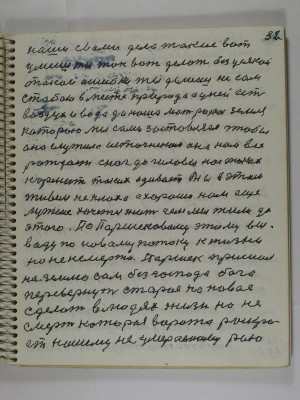 32.
наши с вами дела такие вот
умеем мы так вот делать без всякой
такой ошибки мы делаем не сам
с тобою в мите природа а у ней ест
воздух и вода да наша мат родная земля
которою мы сами заставляем чтобы
она служила источником она нам все
рождает с ног до головы ногтями
кормит також одивает мы в этом
живем не плохо а хорошо нам еще
лутше хочется жит чем мы жили до
этого. По Паршековому этому вы
воду по новому потоку к жизни
но не к смерти. Паршек пришол
на землю сам без господа бога
перевернут старое на новое
сделат в людях жизн но не
смерт которая ворота раскро
ет нашему не умераемому раю